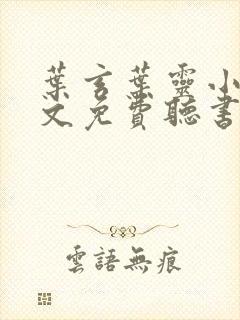 葉言葉靈小
文免費聽書
雲語無痕